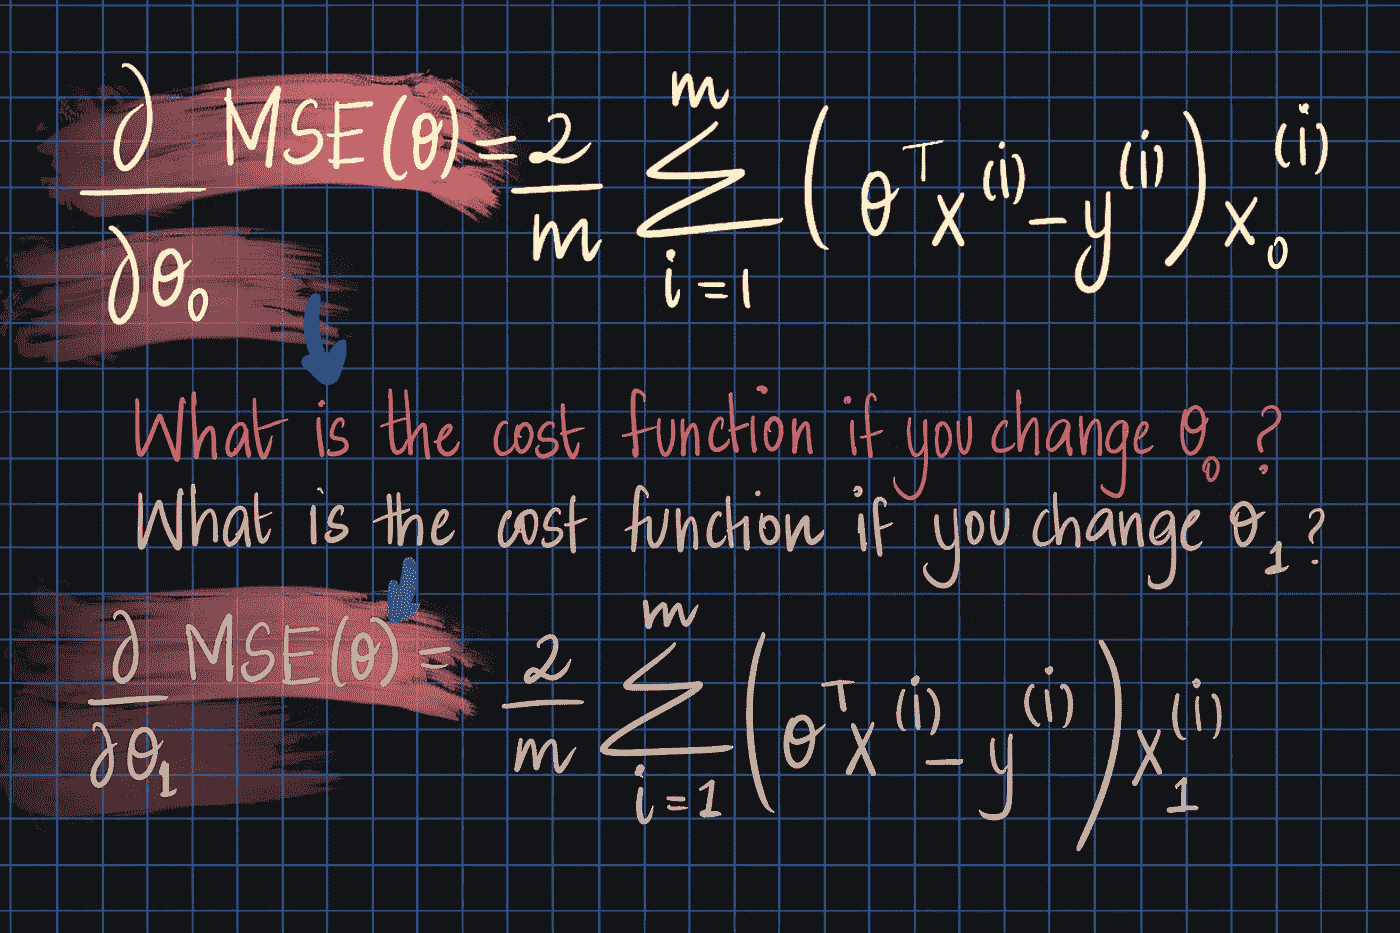 ∂/∂θ₀ MSE(θ) = 2/m ∑ᵢ₌₁ᵐ (θᵀx⁽ⁱ⁾ − y⁽ⁱ⁾) x₀⁽ⁱ⁾
What is the cost function if you change θ₀ ?
What is the cost function if you change θ₁ ?
∂/∂θ₁ MSE(θ) = 2/m ∑ᵢ₌₁ᵐ (θᵀx⁽ⁱ⁾ − y⁽ⁱ⁾) x₁⁽ⁱ⁾